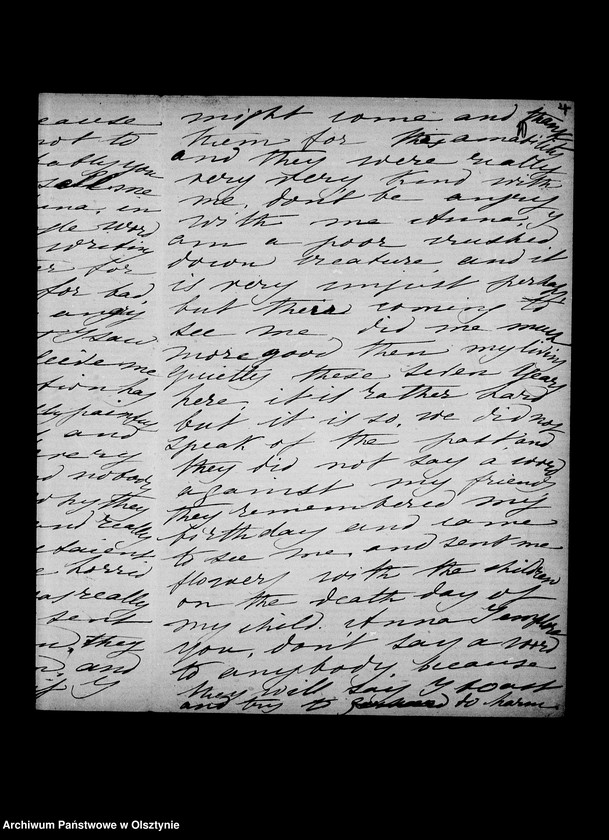 4
might come and thank
them for their amability
and they were really
very very kind with
me, don't be angry
with me Anna, I
am a poor crushed
down creature, and it
is very unjust perhaps
but there coming to
see me, did me much
more good then my living
quietly these seven years
here, it is rather hard
but it is so, we did not
speak of the past and
they did not say a word
against my friend
they remembered my
birthday and came
to see me, and sent me
flowers with the children
on the death day of
my child. Anna I implore
you, don't say a word
to anybody, because
they will say I
and try to do harm
cause
not to
you
me
in
word
writing
er for
for bad,
angry
I saw
me
town has
painful
and
very
d nobody
why they
and really
horrid
as really
sent
they
and
if I
Archiwum Państwowe w Olsztynie